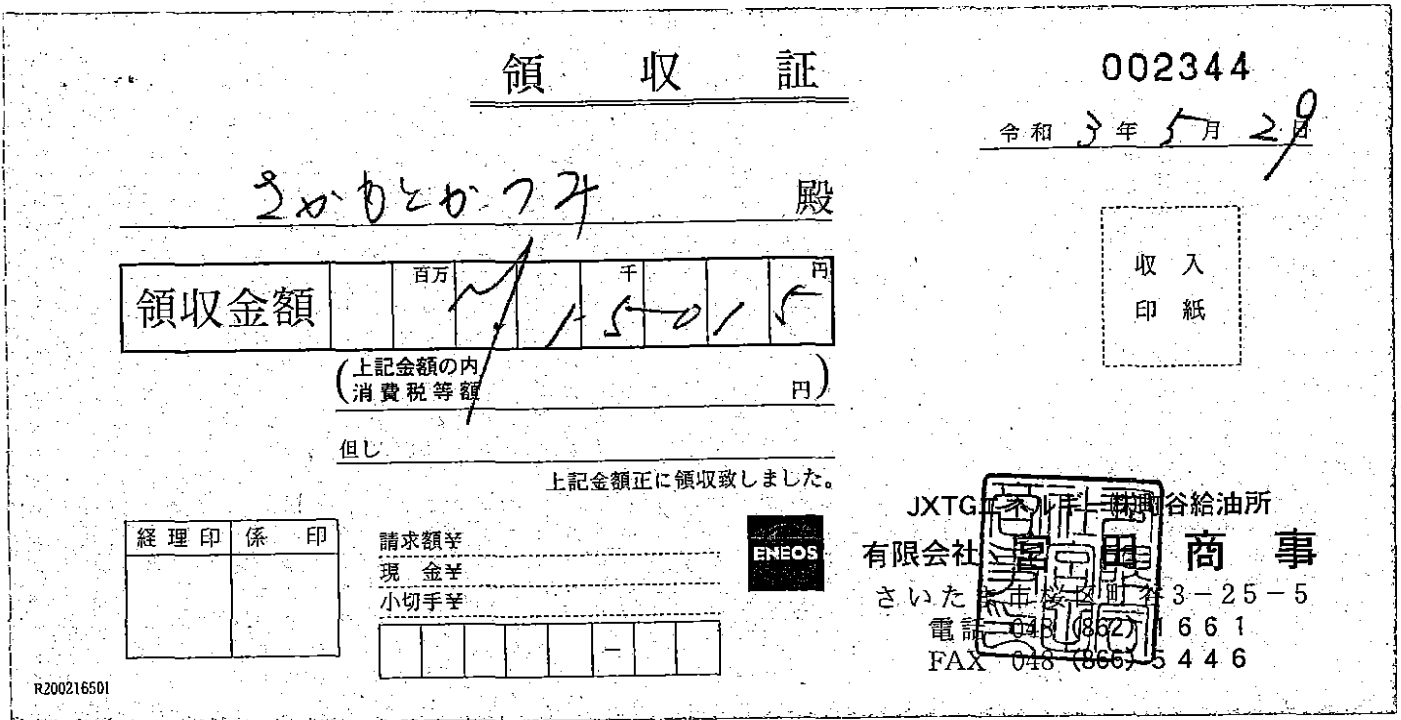 領収証
002344
令和 3年 5月 29日
さかもとかつ子 殿
領収金額 百万 千 円
¥ 15015
(上記金額の内
消費税等額 円)
但し
上記金額正に領収致しました。
経理印 係印
請求額¥
現金¥
小切手¥
-
ENEOS
JXTGエネルギー㈱町谷給油所
有限会社 田商事
さいたま市桜区町谷3-25-5
電話 048 (862) 1661
FAX 048 (866) 5446
R200216501